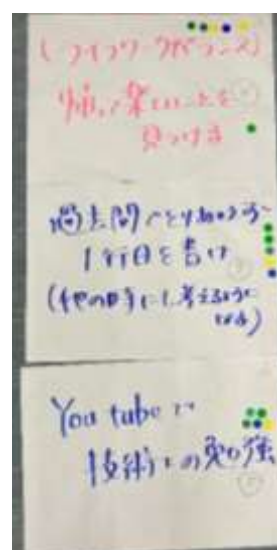 (ライフワークバランス)
帰って楽しいことを
見つける
過去問へとりあえず
1行目を書け
(他の時にも考えるように
なる)
You tubeで
技術士の勉強